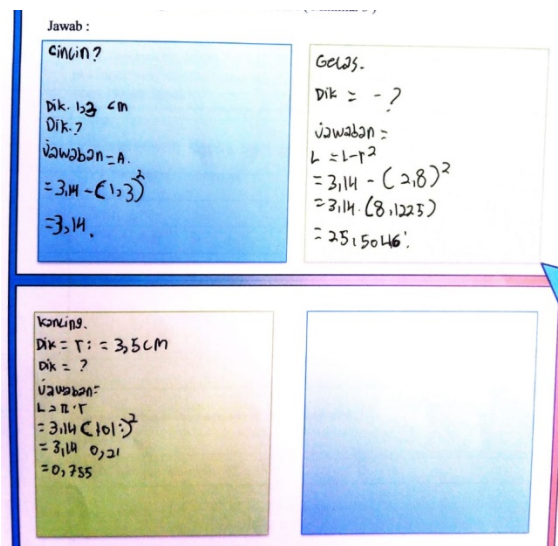 Jawab :
Cincin?
Dik. 1,3 cm
Dik.?
Jawaban = A.
= 3,14 - (1,3)²
= 3,14.
Gelas.
Dik = - ?
Jawaban =
L = L - r²
= 3,14 - (2,8)²
= 3,14. (8,1225)
= 25,5046.
Kancing.
Dik = r : = 3,5 cm
Dik = ?
Jawaban =
= 3,14
= 3,14 0,21
= 0,755